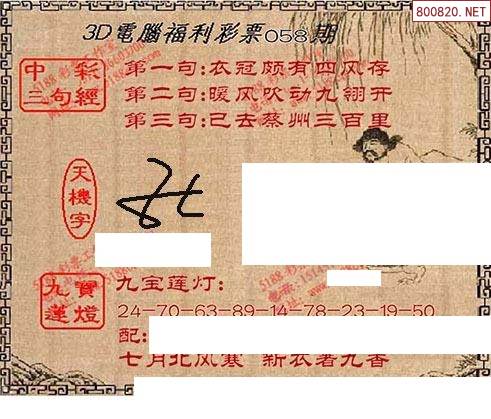 800820.NET
3D電腦福利彩票058期
中彩三句經
第一句:衣冠颇有四风存
第二句:暖风吹动九翎开
第三句:已去蔡州三百里
天機字
九寶蓮燈
九宝莲灯:
24-70-63-89-14-78-23-19-50
配:
七月北风寒 新衣著九香